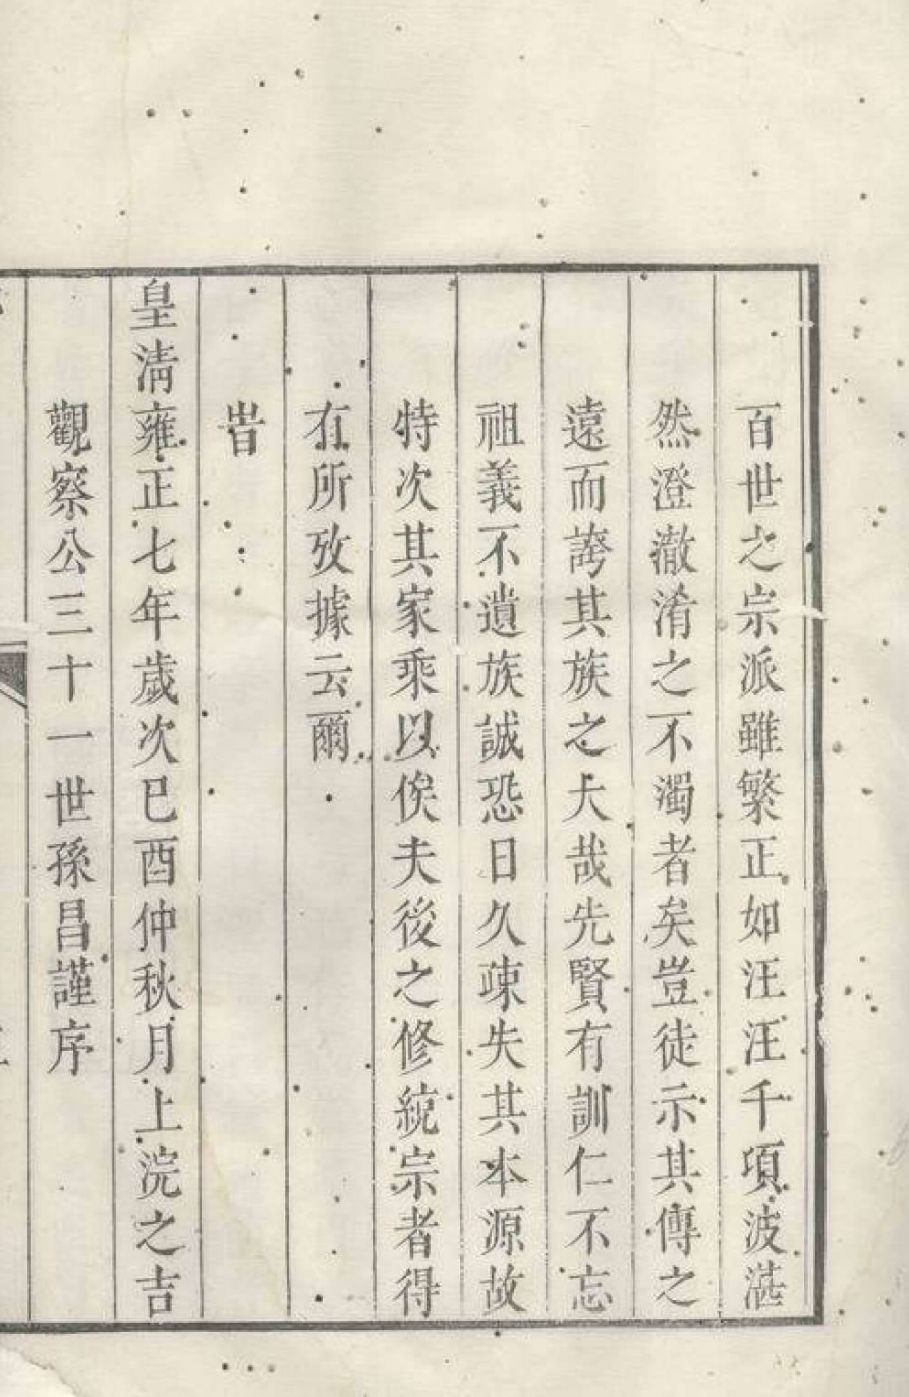 百世之宗派雖繁正如汪汪千項波湛
然澄澈淆之不濁者矣豈徒示其傳之
遠而誇其族之大哉先賢有訓仁不忘
祖義不遺族誠恐日久疎失其本源故
特次其家乘以俟夫後之修統宗者得
有所攷據云爾
旹
皇清雍正七年歲次巳酉仲秋月上浣之吉
觀察公三十一世孫昌謹序